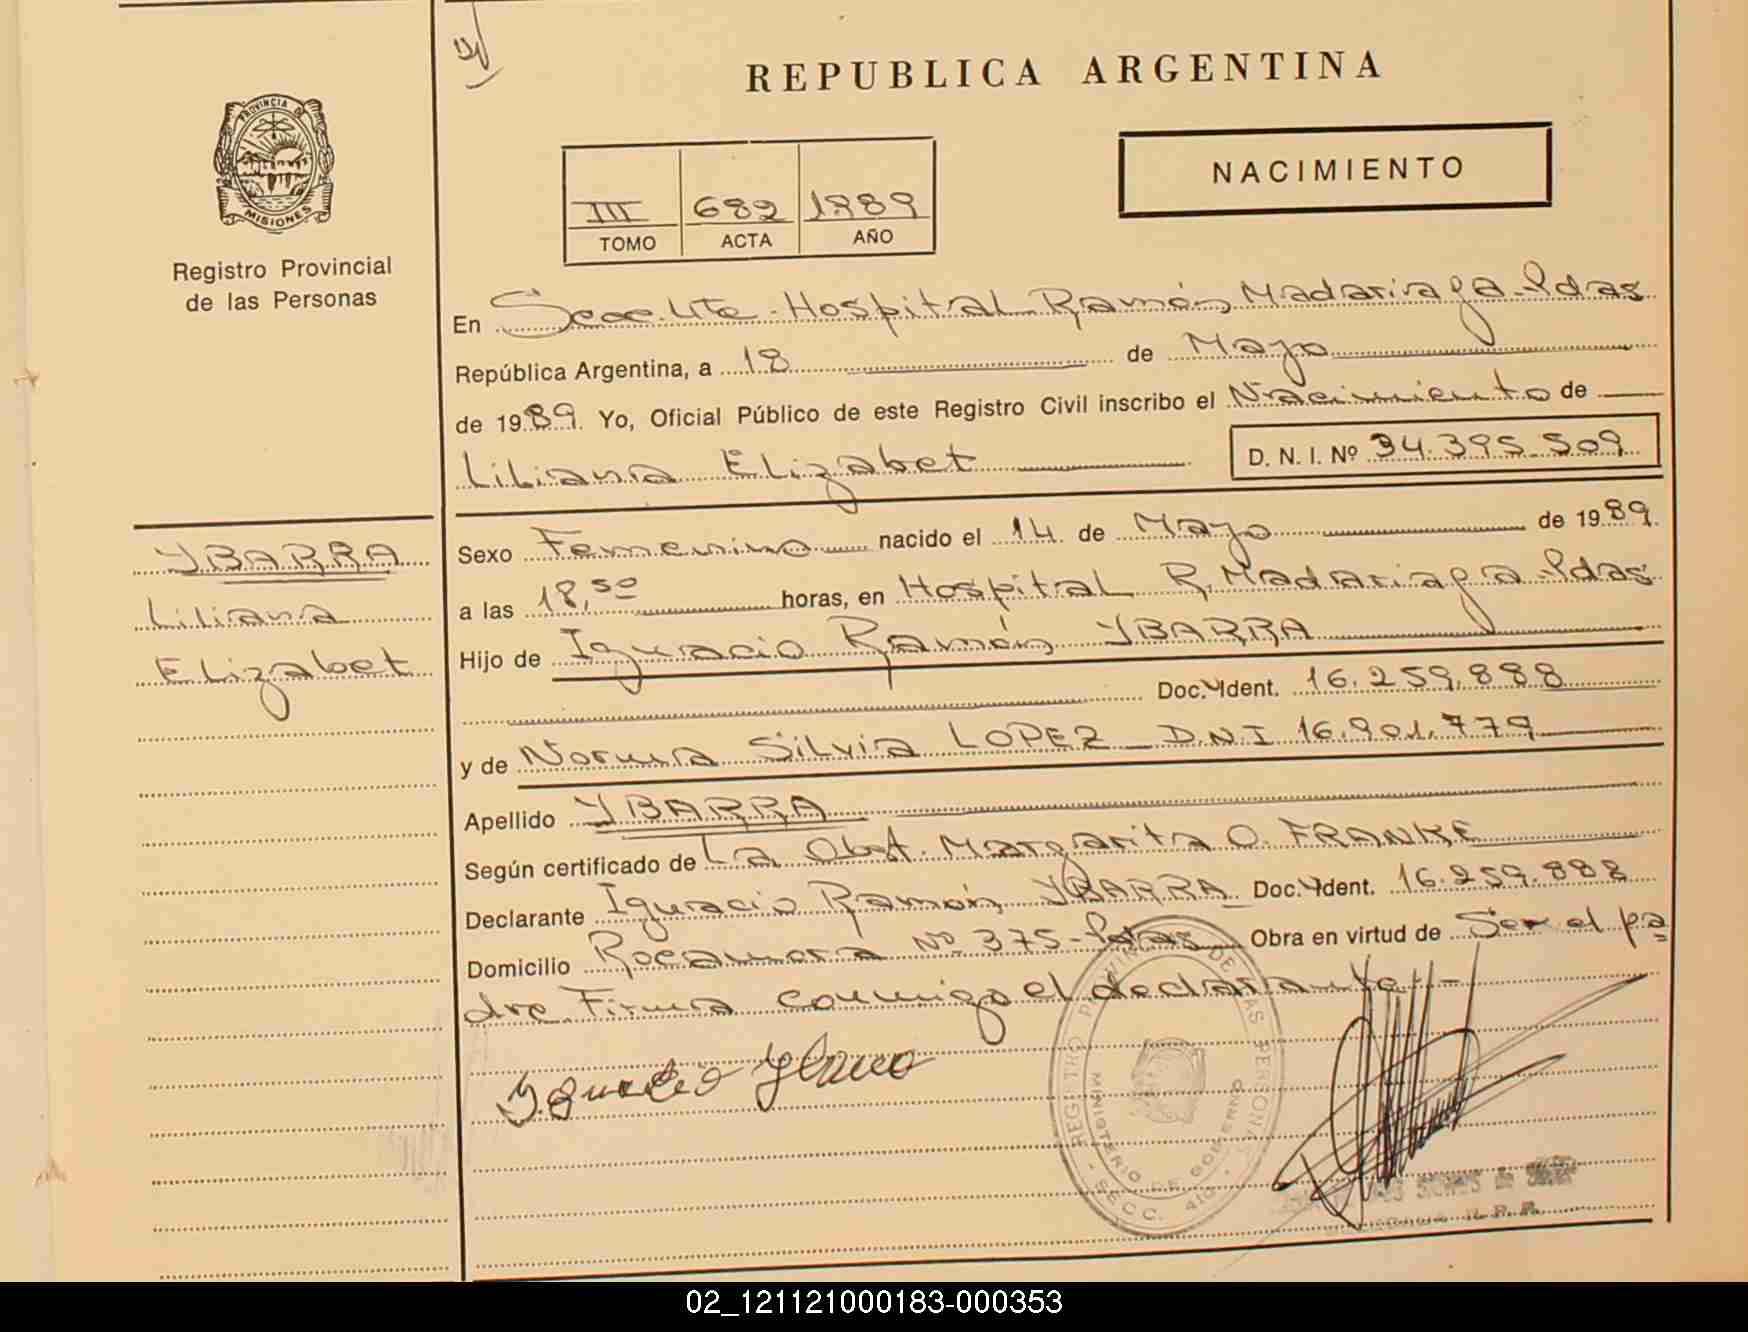 REPUBLICA ARGENTINA
PROVINCIA DE
MISIONES
Registro Provincial
de las Personas
NACIMIENTO
III 682 1989
TOMO ACTA AÑO
En Secc. Ute - Hospital Ramón Madariaga - Pdas
República Argentina, a 18 de Mayo
de 1989. Yo, Oficial Público de este Registro Civil inscribo el Nacimiento de
Liliana Elizabet D. N. I. Nº 34.395.509
YBARRA
Liliana
Elizabet
Sexo Femenino nacido el 14 de Mayo de 1989.
a las 18,50 horas, en Hospital R. Madariaga - Pdas
Hijo de Ignacio Ramón YBARRA
Doc. Ident. 16.259.888
y de Norma Silvia LOPEZ - D.N.I 16.901.779
Apellido YBARRA
Según certificado de La Obst. Margarita O. FRANKE
Declarante Ignacio Ramón YBARRA Doc. Ident. 16.259.888
Domicilio Rocamora Nº 375 - Pdas Obra en virtud de Ser el pa
dre Firma conmigo el declarante -
Ignacio Ybarra
REGISTRO PROVINCIAL DE LAS PERSONAS
MINISTERIO DE GOBIERNO
- SECC. 410 -
02_121121000183-000353